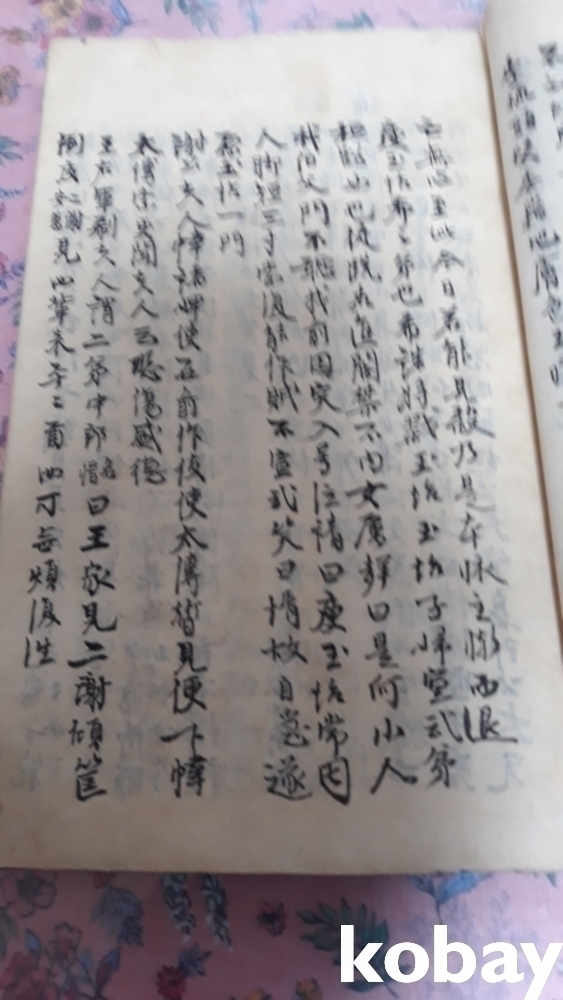 亡無心至此今日若能見殺乃是本懷主慚而退
庾玉坮希之弟也希誅將戮玉坮玉坮子婦宣武弟
桓豁女也徒跣求進閽禁不内女厲聲曰是何小人
我伯父門不聽我前因突入号泣請曰庾玉坮常因
人脚短三寸當復能作賊不宣武笑曰壻故自急遂
原玉坮一門
謝公夫人幃諸婢使在前作伎使太傅暫見便下幃
太傅索更開夫人云恐傷盛德
王右軍郗夫人謂二弟中郎曰王家見二謝傾筐
倒庋見汝輩來平々爾汝可無煩復往
kobay